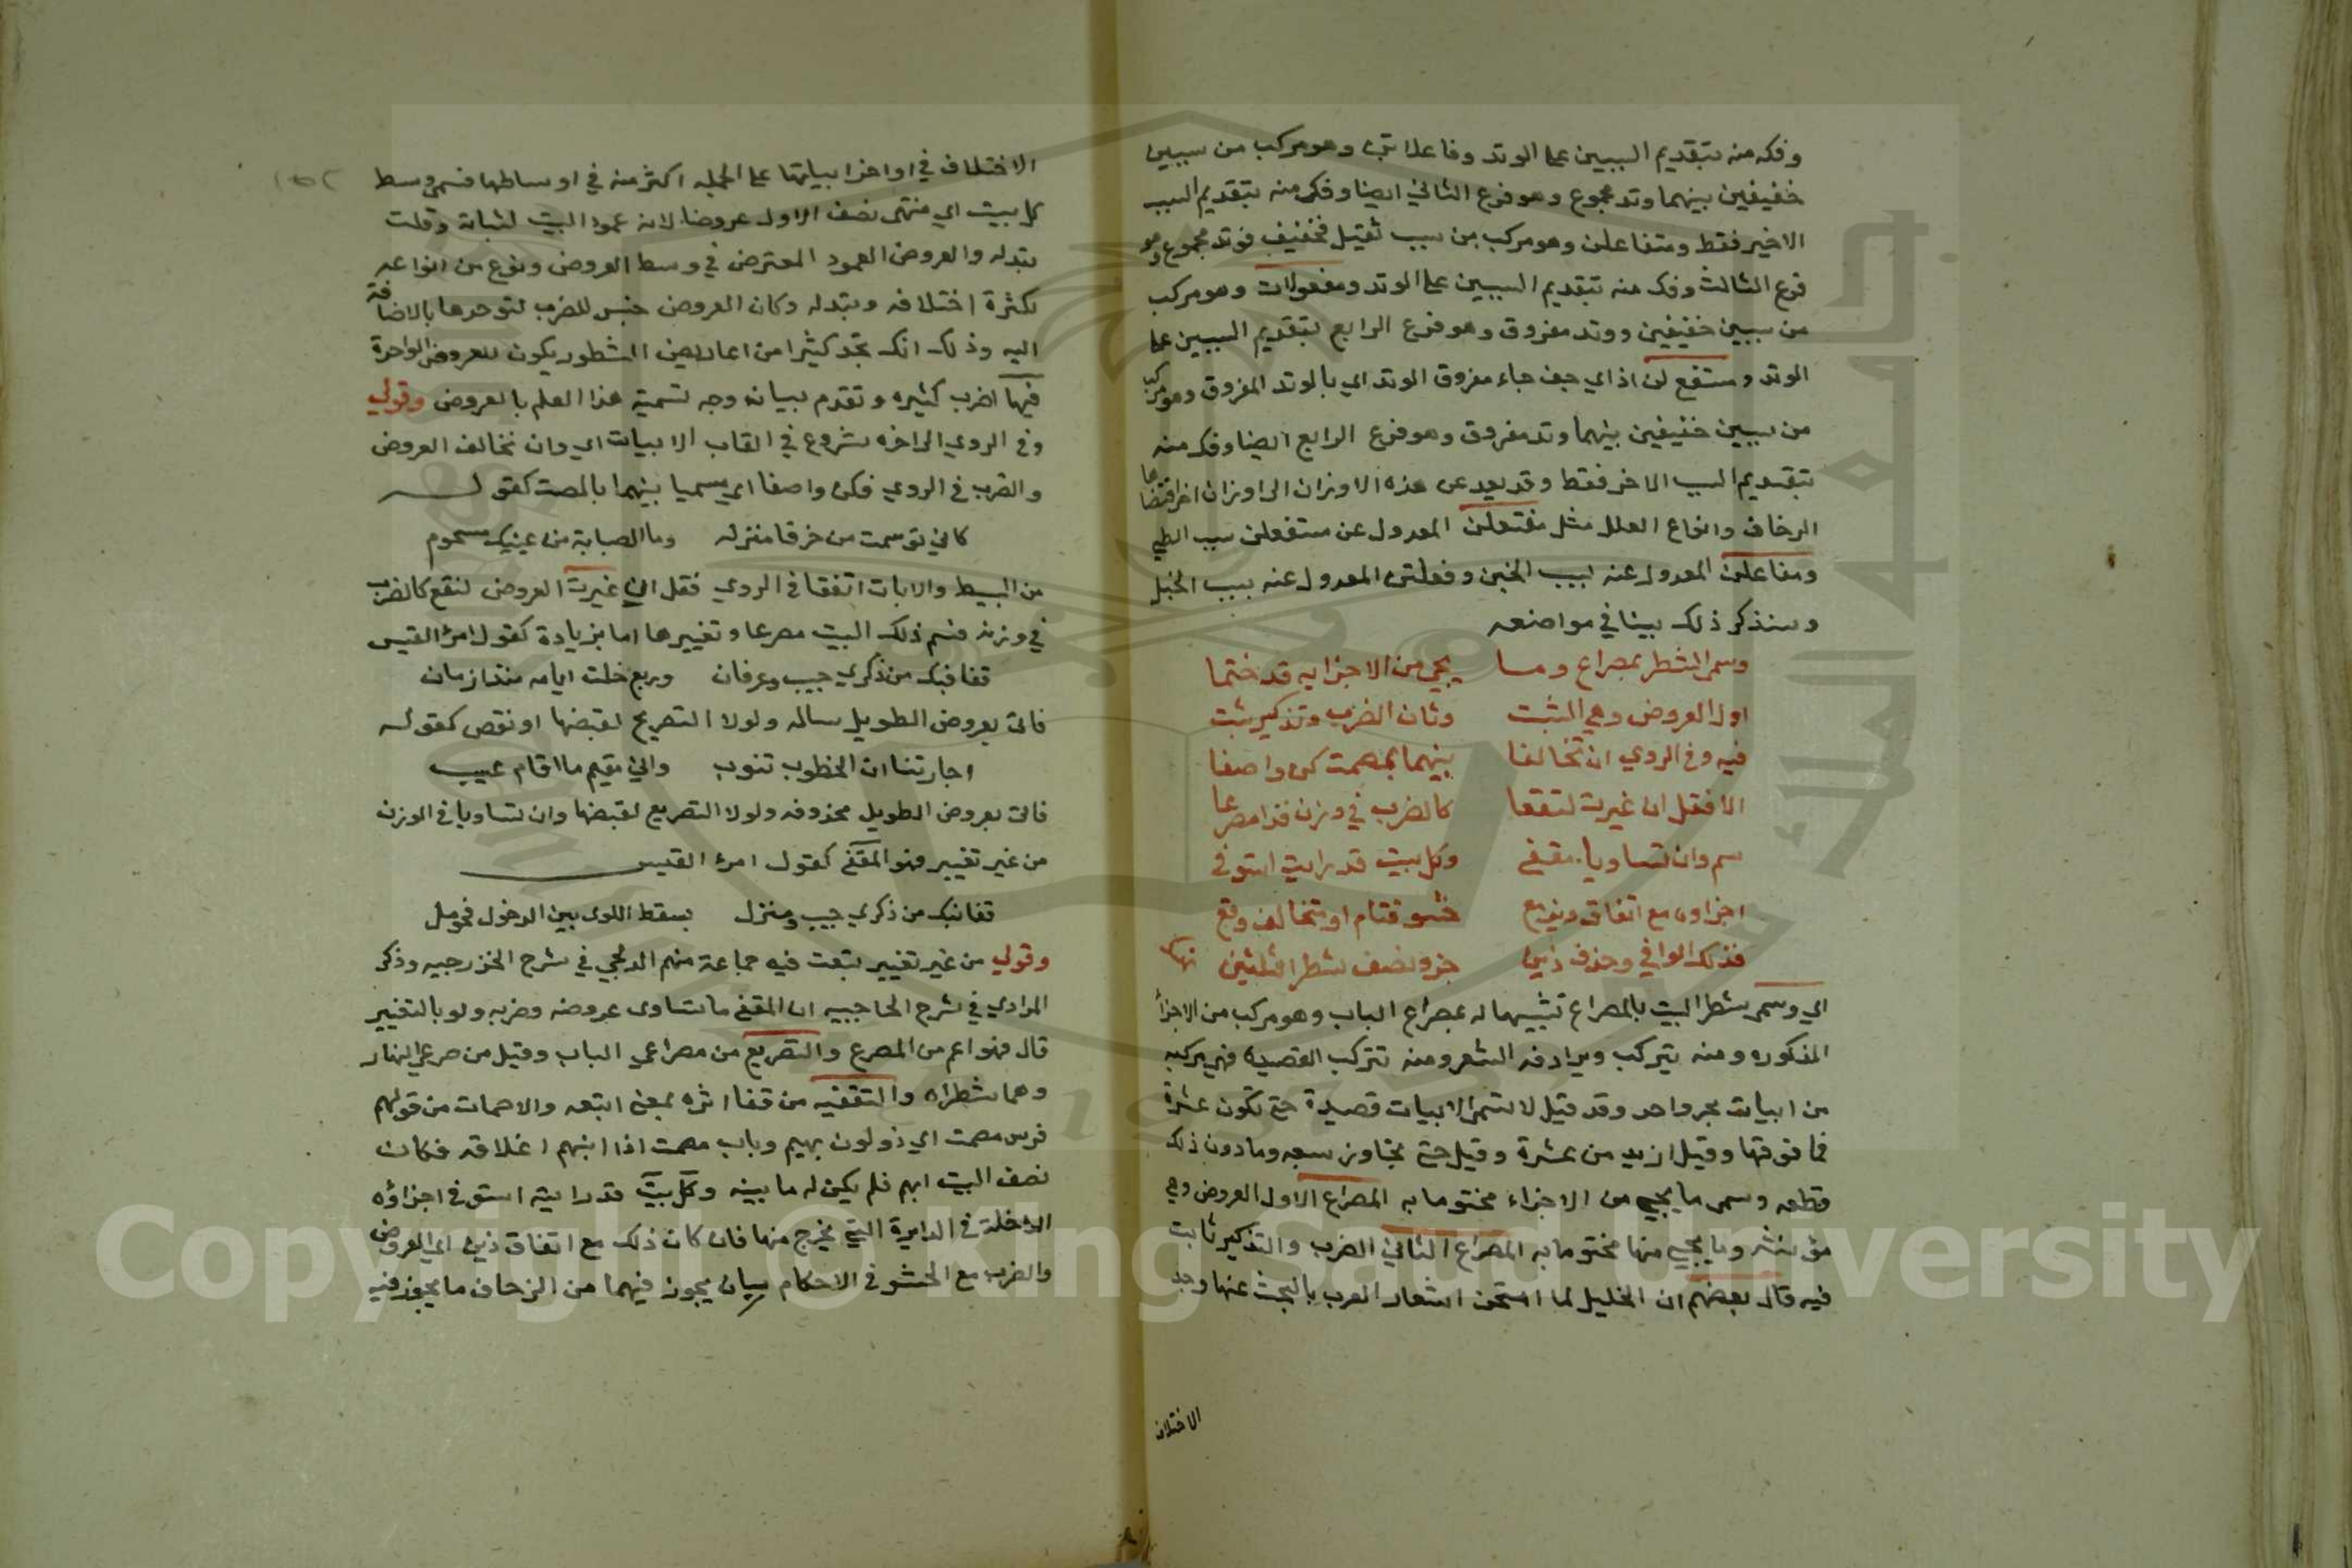 وفكه منه بتقديم السببين على الوتد وفاعلاتن وهو مركب من سببين
خفيفين بينهما وتد مجموع وهو فرع الثاني ايضا وفكه منه بتقديم السبب
الاخير فقط ومتفاعلن وهو مركب من سبب ثقيل فخفيف فوتد مجموع وهو
فرع الثالث وفكه منه بتقديم السببين على الوتد ومفعولات وهو مركب
من سببين خفيفين ووتد مفروق وهو فرع الرابع بتقديم السببين على
الوتد ومستفع لن اذ اي حيث جاء مفروق الوتد اي بالوتد المفروق وهو مركب
من سببين خفيفين بينهما وتد مفروق وهو فرع الرابع ايضا وفكه منه
بتقديم السبب الاخر فقط وقد يعدل عن هذه الاوزان الى اوزان اخر اقتضاها
الزحاف وانواع العلل مثل مفتعلن المعدول عن مستفعلن بسبب الطي
ومفاعلن المعدول عنه بسبب الخبن وفعلتن المعدول عنه بسبب الخبل
وسنذكر ذلك بينا في مواضعه
وسم الشطر بمصراع وما يجي من الاجزا به قد ختما
اول العروض وهي انثت وثان الضرب وتذكير ثبت
فيه وفي الروي ان تخالفا بينهما بمصمت كن واصفا
الا فقل ان غيرت لتتفقا كالضرب في وزن فذا مصرعا
سم وان تساويا مقفى وكل بيت قد رايت استوفى
اجزاوه مع اتفاق ذين مع حشو فتام او تخالف وقع
فذلك الوافي وحذف ذين جزو ونصف شطر الثلثين نهك
اي وسم شطر البيت بالمصراع تشبيها له بمصراع الباب وهو مركب من الاجزأ
المذكوره ومنه يتركب ويرادفه الشعر ومنه تتركب القصيده فهي مركبه
من ابيات بحر واحد وقد قيل لا تسمى الابيات قصيدة حتى تكون عشرة
فما فوقها وقيل ازيد من عشرة وقيل حتى تجاوز سبعه وما دون ذلك
قطعه وسم ما يجي من الاجزاء مختوما به المصراع الاول العروض وهي
مؤنثه وما يجي منها مختوما به المصراع الثاني الضرب والتذكير ثابت
فيه قال بعضهم ان الخليل لما امتحن اشعار العرب بالبحث عنها وجد
الاختلاف
الاختلاف في اواخر ابياتها على الجمله اكثر منه في اوساطها فسمى وسط
كل بيت اي منتهى نصف الاول عروضا لانه عمود البيت لثباته وقلت
تبدله والعروض العمود المعترض في وسط العروض ونوع من انواعه
لكثرة اختلافه وتبدله وكان العروض جنس للضرب لتوحدها بالاضافة
اليه وذلك انك تجد كثيرا من اعاريض الشطور يكون للعروض الواحدة
فيها اضرب كثيره وتقدم بيان وجه تسمية هذا العلم بالعروض وقولي
وفي الروي الى اخره شروع في القاب الابيات اي وان تخالف العروض
والضرب في الروي فكن واصفا اي مسميا بينهما بالمصمت كقوله
كاني توسمت من خرقا منزله وما الصبابة من عينيك مسجوم
من البسيط والا بان اتفقا في الروي فقل ان غيرت العروض لتقع كالضرب
في وزنه فسم ذلك البيت مصرعا وتغييرها اما بزيادة كقول امرئ القيس
قفا نبك من ذكرى حبيب وعرفان وربع خلت اياته منذ ازمان
فاتى بعروض الطويل سالمه ولولا التصريع لقبضها او نقص كقوله
اجارتنا ان الخطوب تنوب واني مقيم ما اقام عسيب
فاتى بعروض الطويل محذوفه ولولا التصريع لقبضها وان تساويا في الوزن
من غير تغيير فهو المقفى كقول امرئ القيس
قفا نبك من ذكرى حبيب ومنزل بسقط اللوى بين الدخول فحومل
وقولي من غير تغيير تبعت فيه جماعة منهم الدلجي في شرح الخزرجيه وذكر
المرادي في شرح الحاجبيه ان المقفى ما تساوى عروضه وضربه ولو بالتغيير
قال فهو اعم من المصرع والتصريع من مصراعي الباب وقيل من صرعي النهار
وهما شطراه والتقفيه من قفا اثره بمعنى اتبعه والاصمات من قولهم
فرس مصمت اي ذو لون بهيم وباب مصمت اذا ابهم اغلاقه فكان
نصف البيت ابهم فلم يكن له ما يبينه وكل بيت قد رايته استوفى اجزاؤه
الداخلة في الدايرة التي يخرج منها فان كان ذلك مع اتفاق ذين اي العروض
والضرب مع الحشو في الاحكام بان يجوز فيهما من الزحاف ما يجوز فيه
Copyright © King Saud University